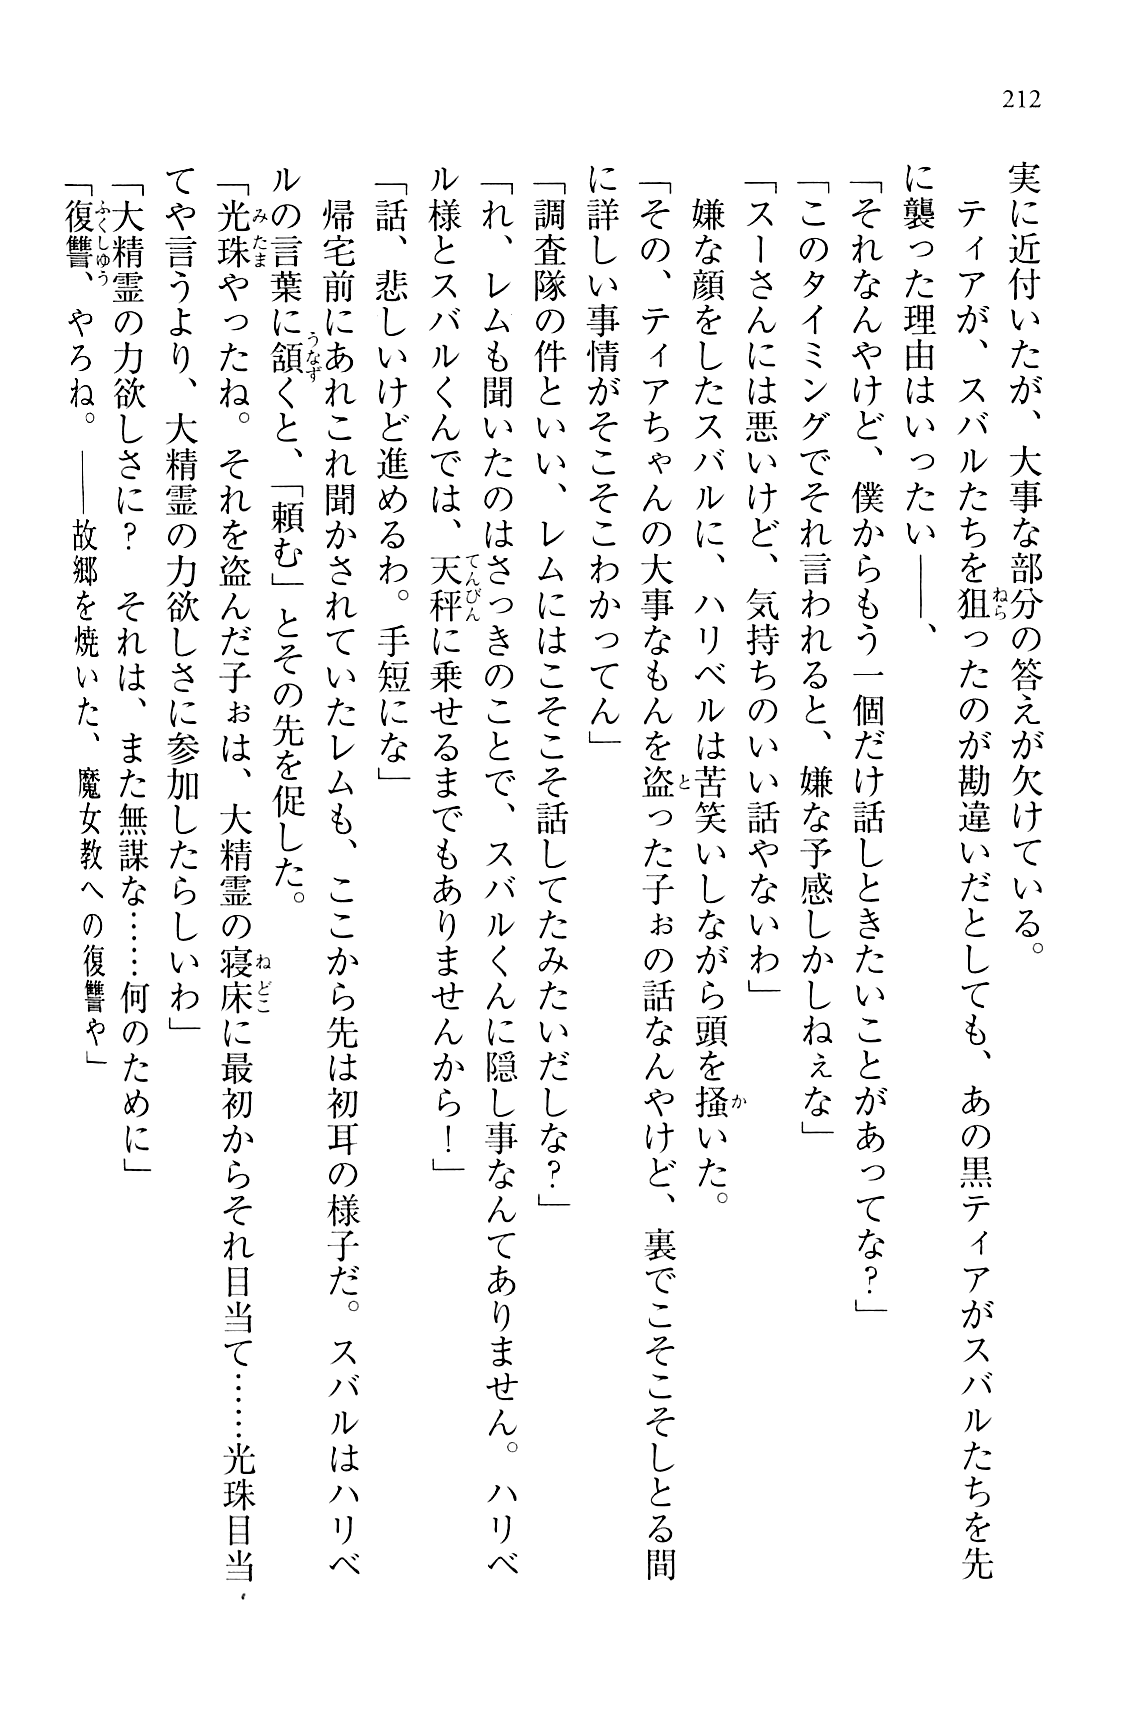 212
実に近付いたが、大事な部分の答えが欠けている。
　ティアが、スバルたちを狙ったのが勘違いだとしても、あの黒ティアがスバルたちを先
に襲った理由はいったい――、
「それなんやけど、僕からもう一個だけ話しときたいことがあってな？」
「このタイミングでそれ言われると、嫌な予感しかしねぇな」
「スーさんには悪いけど、気持ちのいい話やないわ」
　嫌な顔をしたスバルに、ハリベルは苦笑いしながら頭を掻いた。
「その、ティアちゃんの大事なもんを盗った子ぉの話なんやけど、裏でこそこそしとる間
に詳しい事情がそこそこわかってん」
「調査隊の件といい、レムにはこそこそ話してたみたいだしな？」
「れ、レムも聞いたのはさっきのことで、スバルくんに隠し事なんてありません。ハリベ
ル様とスバルくんでは、天秤に乗せるまでもありませんから！」
「話、悲しいけど進めるわ。手短にな」
　帰宅前にあれこれ聞かされていたレムも、ここから先は初耳の様子だ。スバルはハリベ
ルの言葉に頷くと、「頼む」とその先を促した。
「光珠やったね。それを盗んだ子ぉは、大精霊の寝床に最初からそれ目当て……光珠目当
てや言うより、大精霊の力欲しさに参加したらしいわ」
「大精霊の力欲しさに？　それは、また無謀な……何のために」
「復讐、やろね。――故郷を焼いた、魔女教への復讐や」